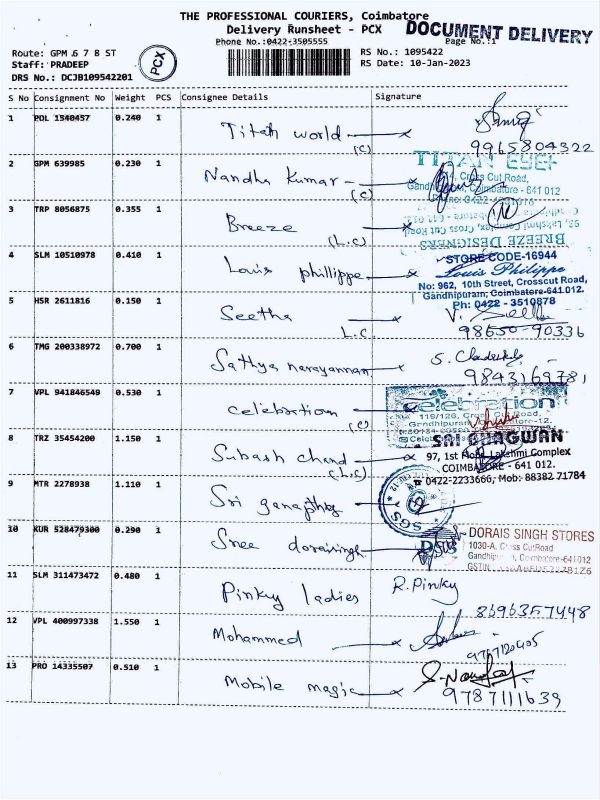 THE PROFESSIONAL COURIERS, Coimbatore
Delivery Runsheet - PCX
DOCUMENT DELIVERY
Phone No.:0422-3505555
Page No.:1
Route: GPM 6 7 8 ST
RS No.: 1095422
Staff: PRADEEP
PCX
RS Date: 10-Jan-2023
DRS No.: DCJB109542201
S No Consignment No Weight PCS Consignee Details Signature
1 PDL 1540457 0.240 1 Titan world
(C)
9965804322
TITAN EYE+
2 GPM 639985 0.230 1 Nandha Kumar
(C)
Cross Cut Road,
Coimbatore - 641 012
3 TRP 8056875 0.355 1 Breeze
(L.C)
Cross Cut Road
BREEZE DESIGNERS
4 SLM 10510978 0.410 1 Louis phillippe
STORE CODE-16944
Louis Philippe
No: 962, 10th Street, Crosscut Road,
Gandhipuram, Coimbatore-641 012.
Ph: 0422 - 3510878
5 HSR 2611816 0.150 1 Seetha
L.C.
98650 90336
6 TMG 200338972 0.700 1 Sathya narayannan
9843169781
7 VPL 941846549 0.530 1 celebartion
(C)
celebration
119/126, Cross Cut Road,
8 TRZ 35454200 1.150 1 Subash chand
(L.C)
SRI BHAGWAN
97, 1st Floor, Lakshmi Complex
COIMBATORE - 641 012.
0422-2233666, Mob: 88382 71784
9 MTR 2278938 1.110 1 Sri ganapthy
SGS
10 KUR 528479300 0.290 1 Sree doraisingh
DORAIS SINGH STORES
1030-A, Cross CutRoad
Coimbatore-641012
GSTIN
11 SLM 311473472 0.480 1 Pinky ladies R. Pinky
8696357448
12 VPL 400997338 1.550 1 Mohammed
13 PRO 14335507 0.510 1 Mobile magic
9787111639